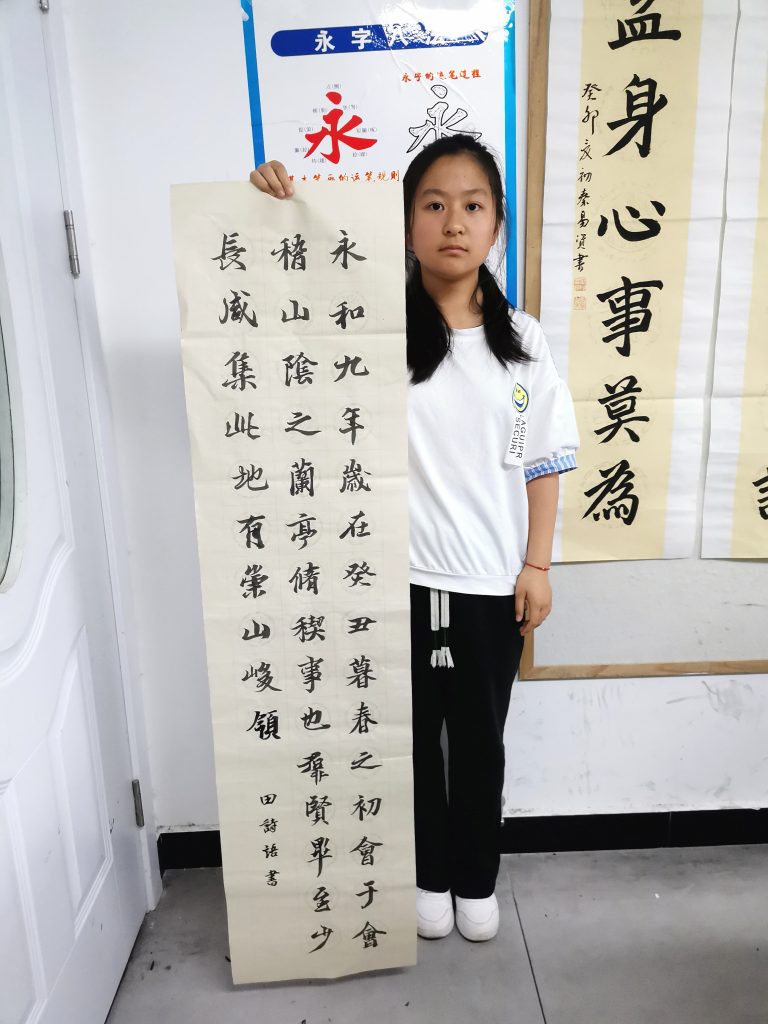 永字八
永字的运笔过程
永
永
本笔画的运笔规则
永和九年歲在癸丑暮春之初會于會
稽山陰之蘭亭脩稧事也羣賢畢至少
長咸集此地有崇山峻領
田詩語書
AGUIPR
SECURI
益身心事莫為
癸卯夏初秦易賢書